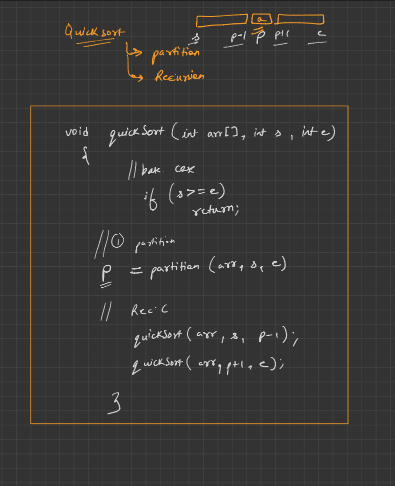 Quick sort
partition
Recursion
a
s p-1 p p+1 e
void quickSort (int arr[], int s, int e)
{
// base case
if (s>=e)
return;
// ① partition
P = partition (arr, s, e)
// Rec: C
quickSort (arr, s, p-1);
quickSort (arr, p+1, e);
}